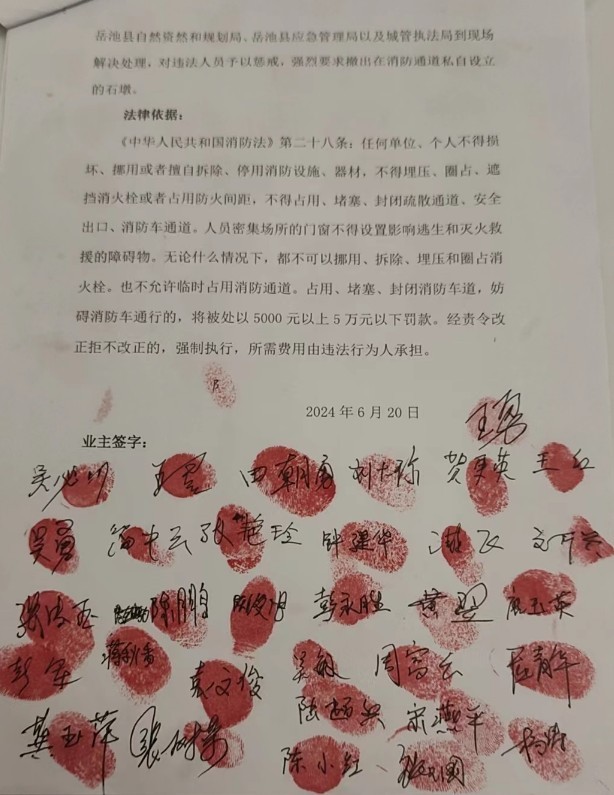 岳池县自然资然和规划局、岳池县应急管理局以及城管执法局到现场
解决处理，对违法人员予以惩戒，强烈要求撤出在消防通道私自设立
的石墩。
法律依据：
《中华人民共和国消防法》第二十八条：任何单位、个人不得损
坏、挪用或者擅自拆除、停用消防设施、器材，不得埋压、圈占、遮
挡消火栓或者占用防火间距，不得占用、堵塞、封闭疏散通道、安全
出口、消防车通道。人员密集场所的门窗不得设置影响逃生和灭火救
援的障碍物。无论什么情况下，都不可以挪用、拆除、埋压和圈占消
火栓。也不允许临时占用消防通道。占用、堵塞、封闭消防车道，妨
碍消防车通行的，将被处以 5000 元以上 5 万元以下罚款。经责令改
正拒不改正的，强制执行，所需费用由违法行为人承担。
2024 年 6 月 20 日
王勇
业主签字：
田朝勇 贺更英 王红
吴勇 钟建华
陈鹏 彭永胜
彭军 袁文俊 吴敏 周富云
龚玉萍 宋燕平
陈小红